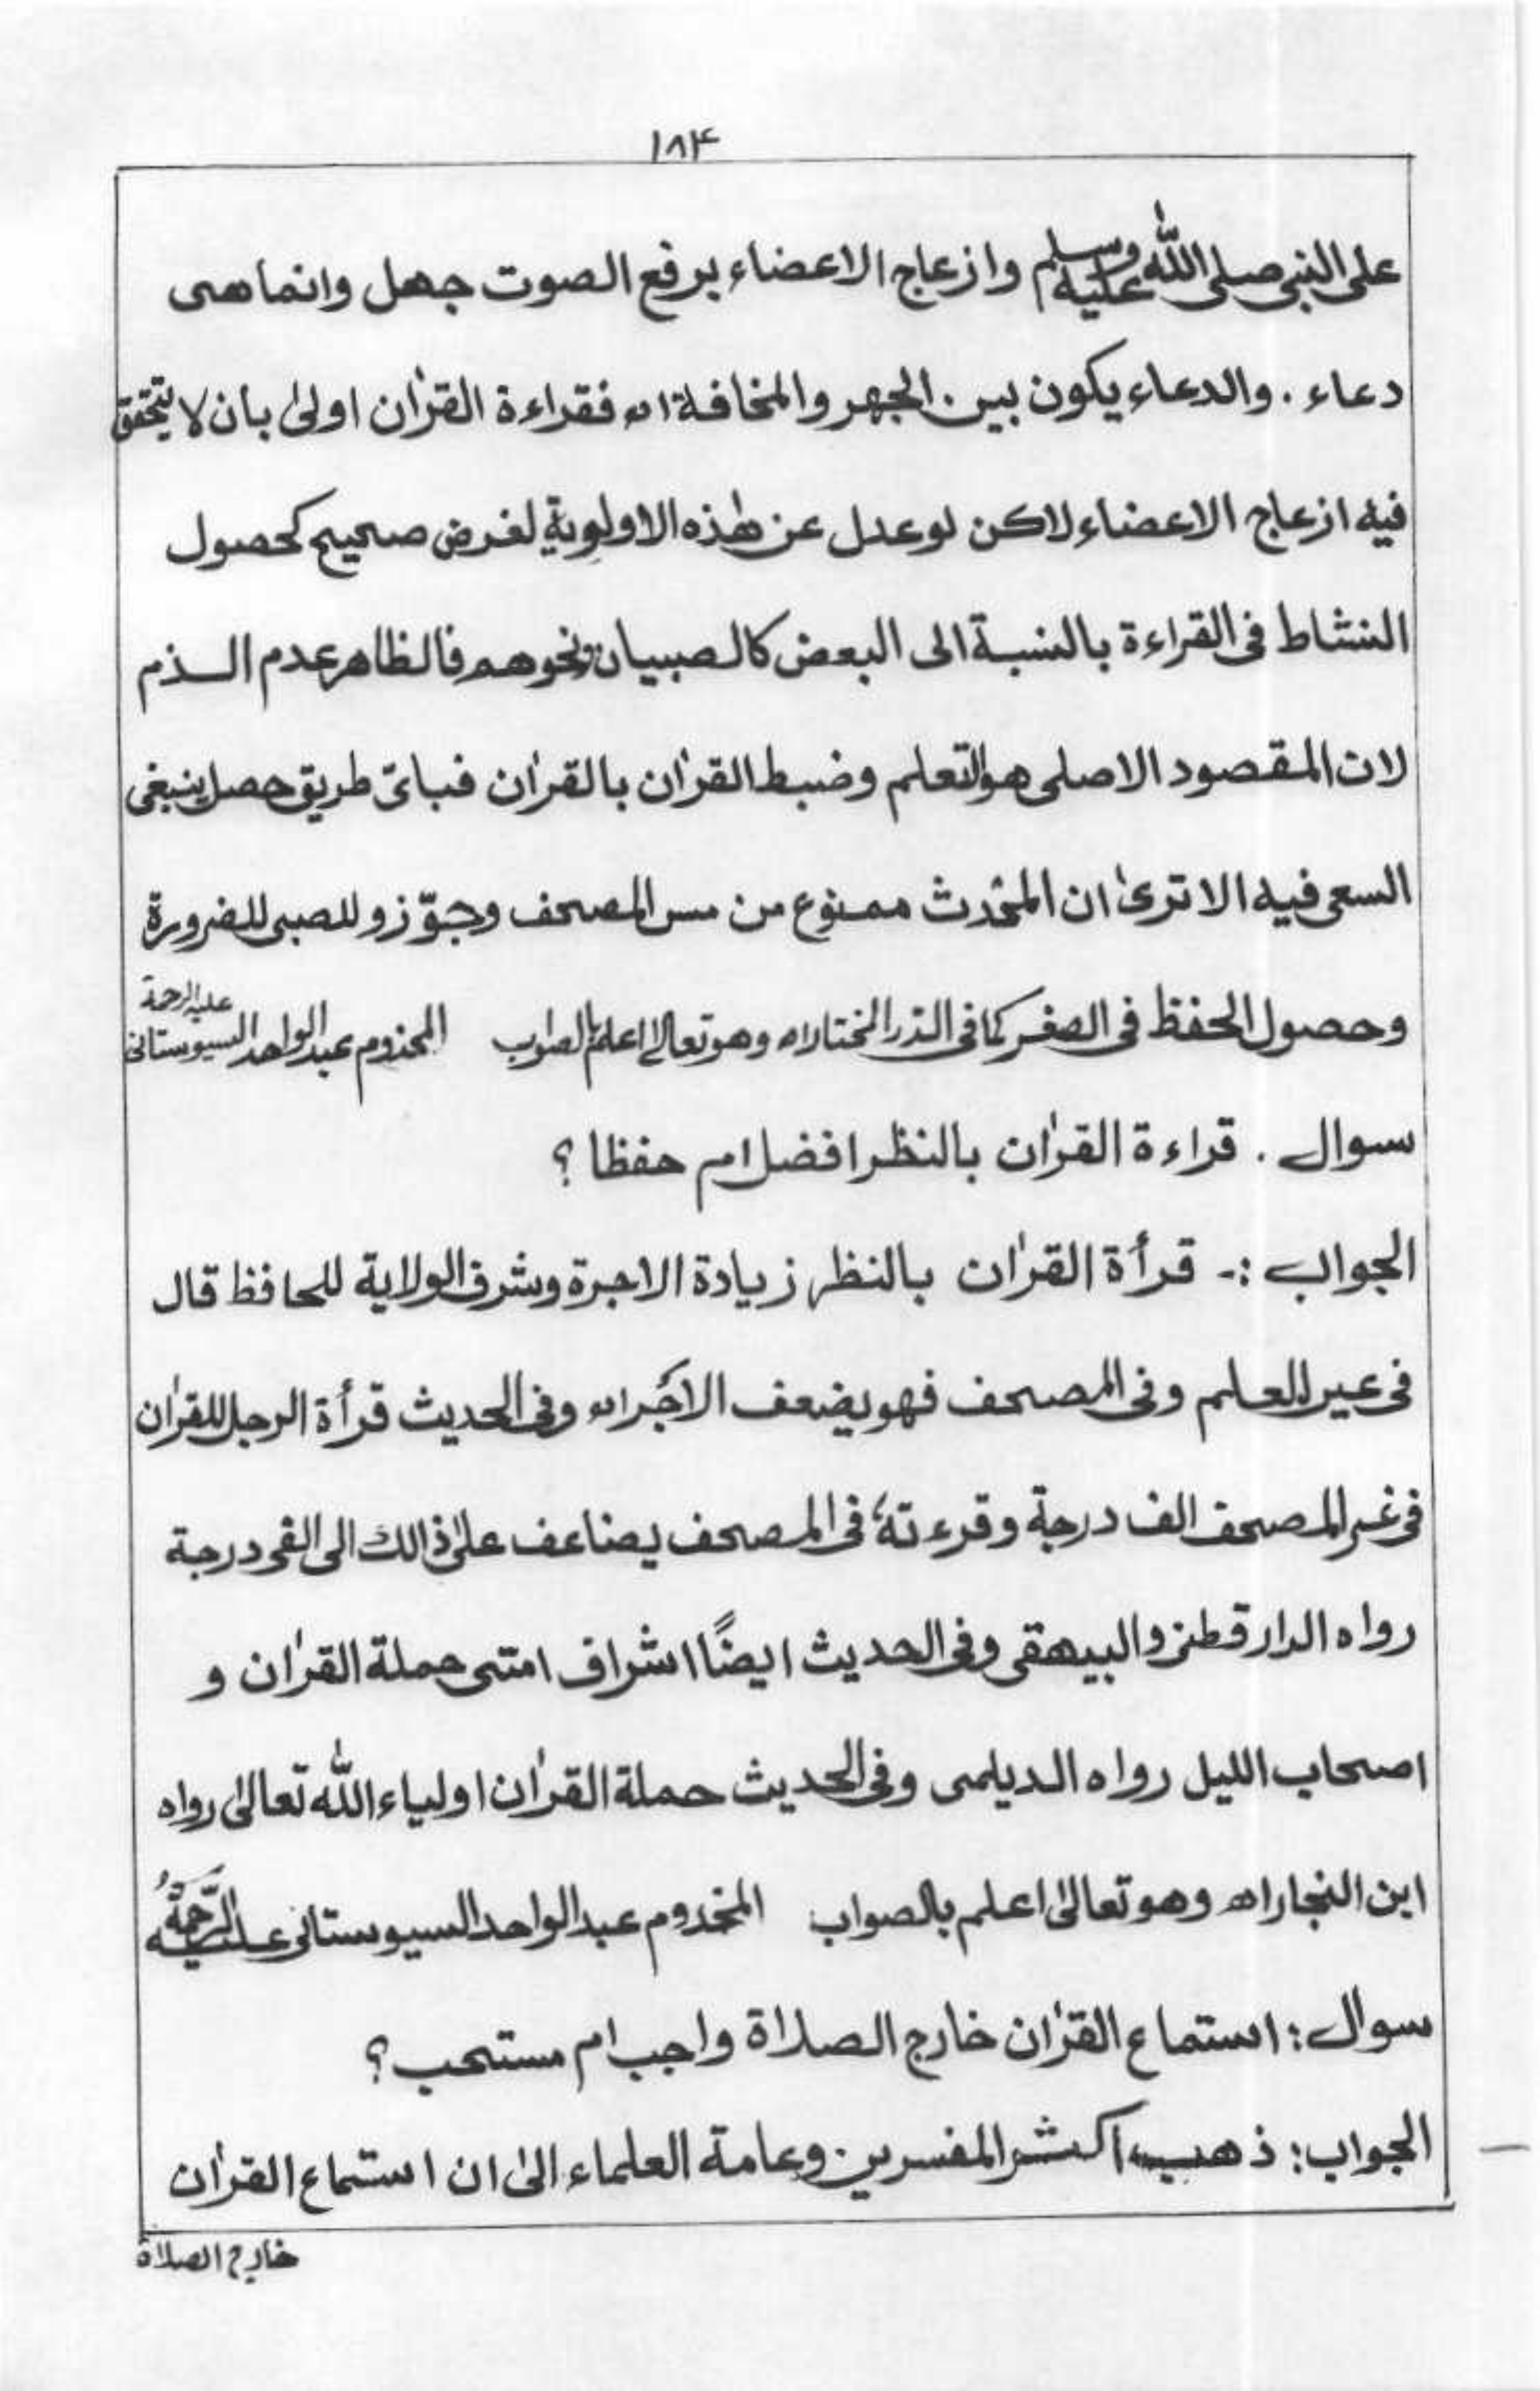 ۱۸۴
على النبى صلى الله عليه وسلم وازعاج الاعضاء برفع الصوت جهل وانما هى
دعاء . والدعاء يكون بين الجهر والمخافة اه فقراءة القرٰان اولىٰ بأن لا يتحقق
فيه ازعاج الاعضاء لاكن لو عدل عن هٰذه الاولوية لغرض صحيح كحصول
النشاط فى القراءة بالنسبة الى البعض كالصبيان ونحوهم فالظاهر عدم الذم
لان المقصود الاصلى هو التعلم وضبط القرٰان بالقرٰان فبائ طريق حصل ينبغى
السعى فيه الا ترىٰ ان المحدث ممنوع من مس المصحف وجوّزو للصبى للضرورة
وحصول الحفظ فى الصغر كما فى الدر المختار اه وهو تعالىٰ اعلم بالصواب المخدوم عبد الواحد السيوستانى عليه الرحمة
سوال . قراءة القرٰان بالنظر افضل ام حفظا ؟
الجواب :- قرأة القرٰان بالنظر زيادة الاجرة وشرف الولاية للحافظ قال
فى عين العلم وفى المصحف فهو يضعف الاجر اه وفى الحديث قرأة الرجل للقرٰان
فى غير المصحف الف درجة وقرءته فى المصحف يضاعف علىٰ ذالك الى الفى درجة
رواه الدارقطنى والبيهقى وفى الحديث ايضًا اشراف امتى حملة القرٰان و
اصحاب الليل رواه الديلمى وفى الحديث حملة القرٰان اولياء الله تعالىٰ رواه
ابن النجار اه وهو تعالىٰ اعلم بالصواب المخدوم عبد الواحد السيوستانى عليه الرَّحمةُ
سوال : استماع القرٰان خارج الصلاة واجب ام مستحب ؟
الجواب : ذهب اكثر المفسرين وعامة العلماء الىٰ ان استماع القرٰان
خارج الصلاة